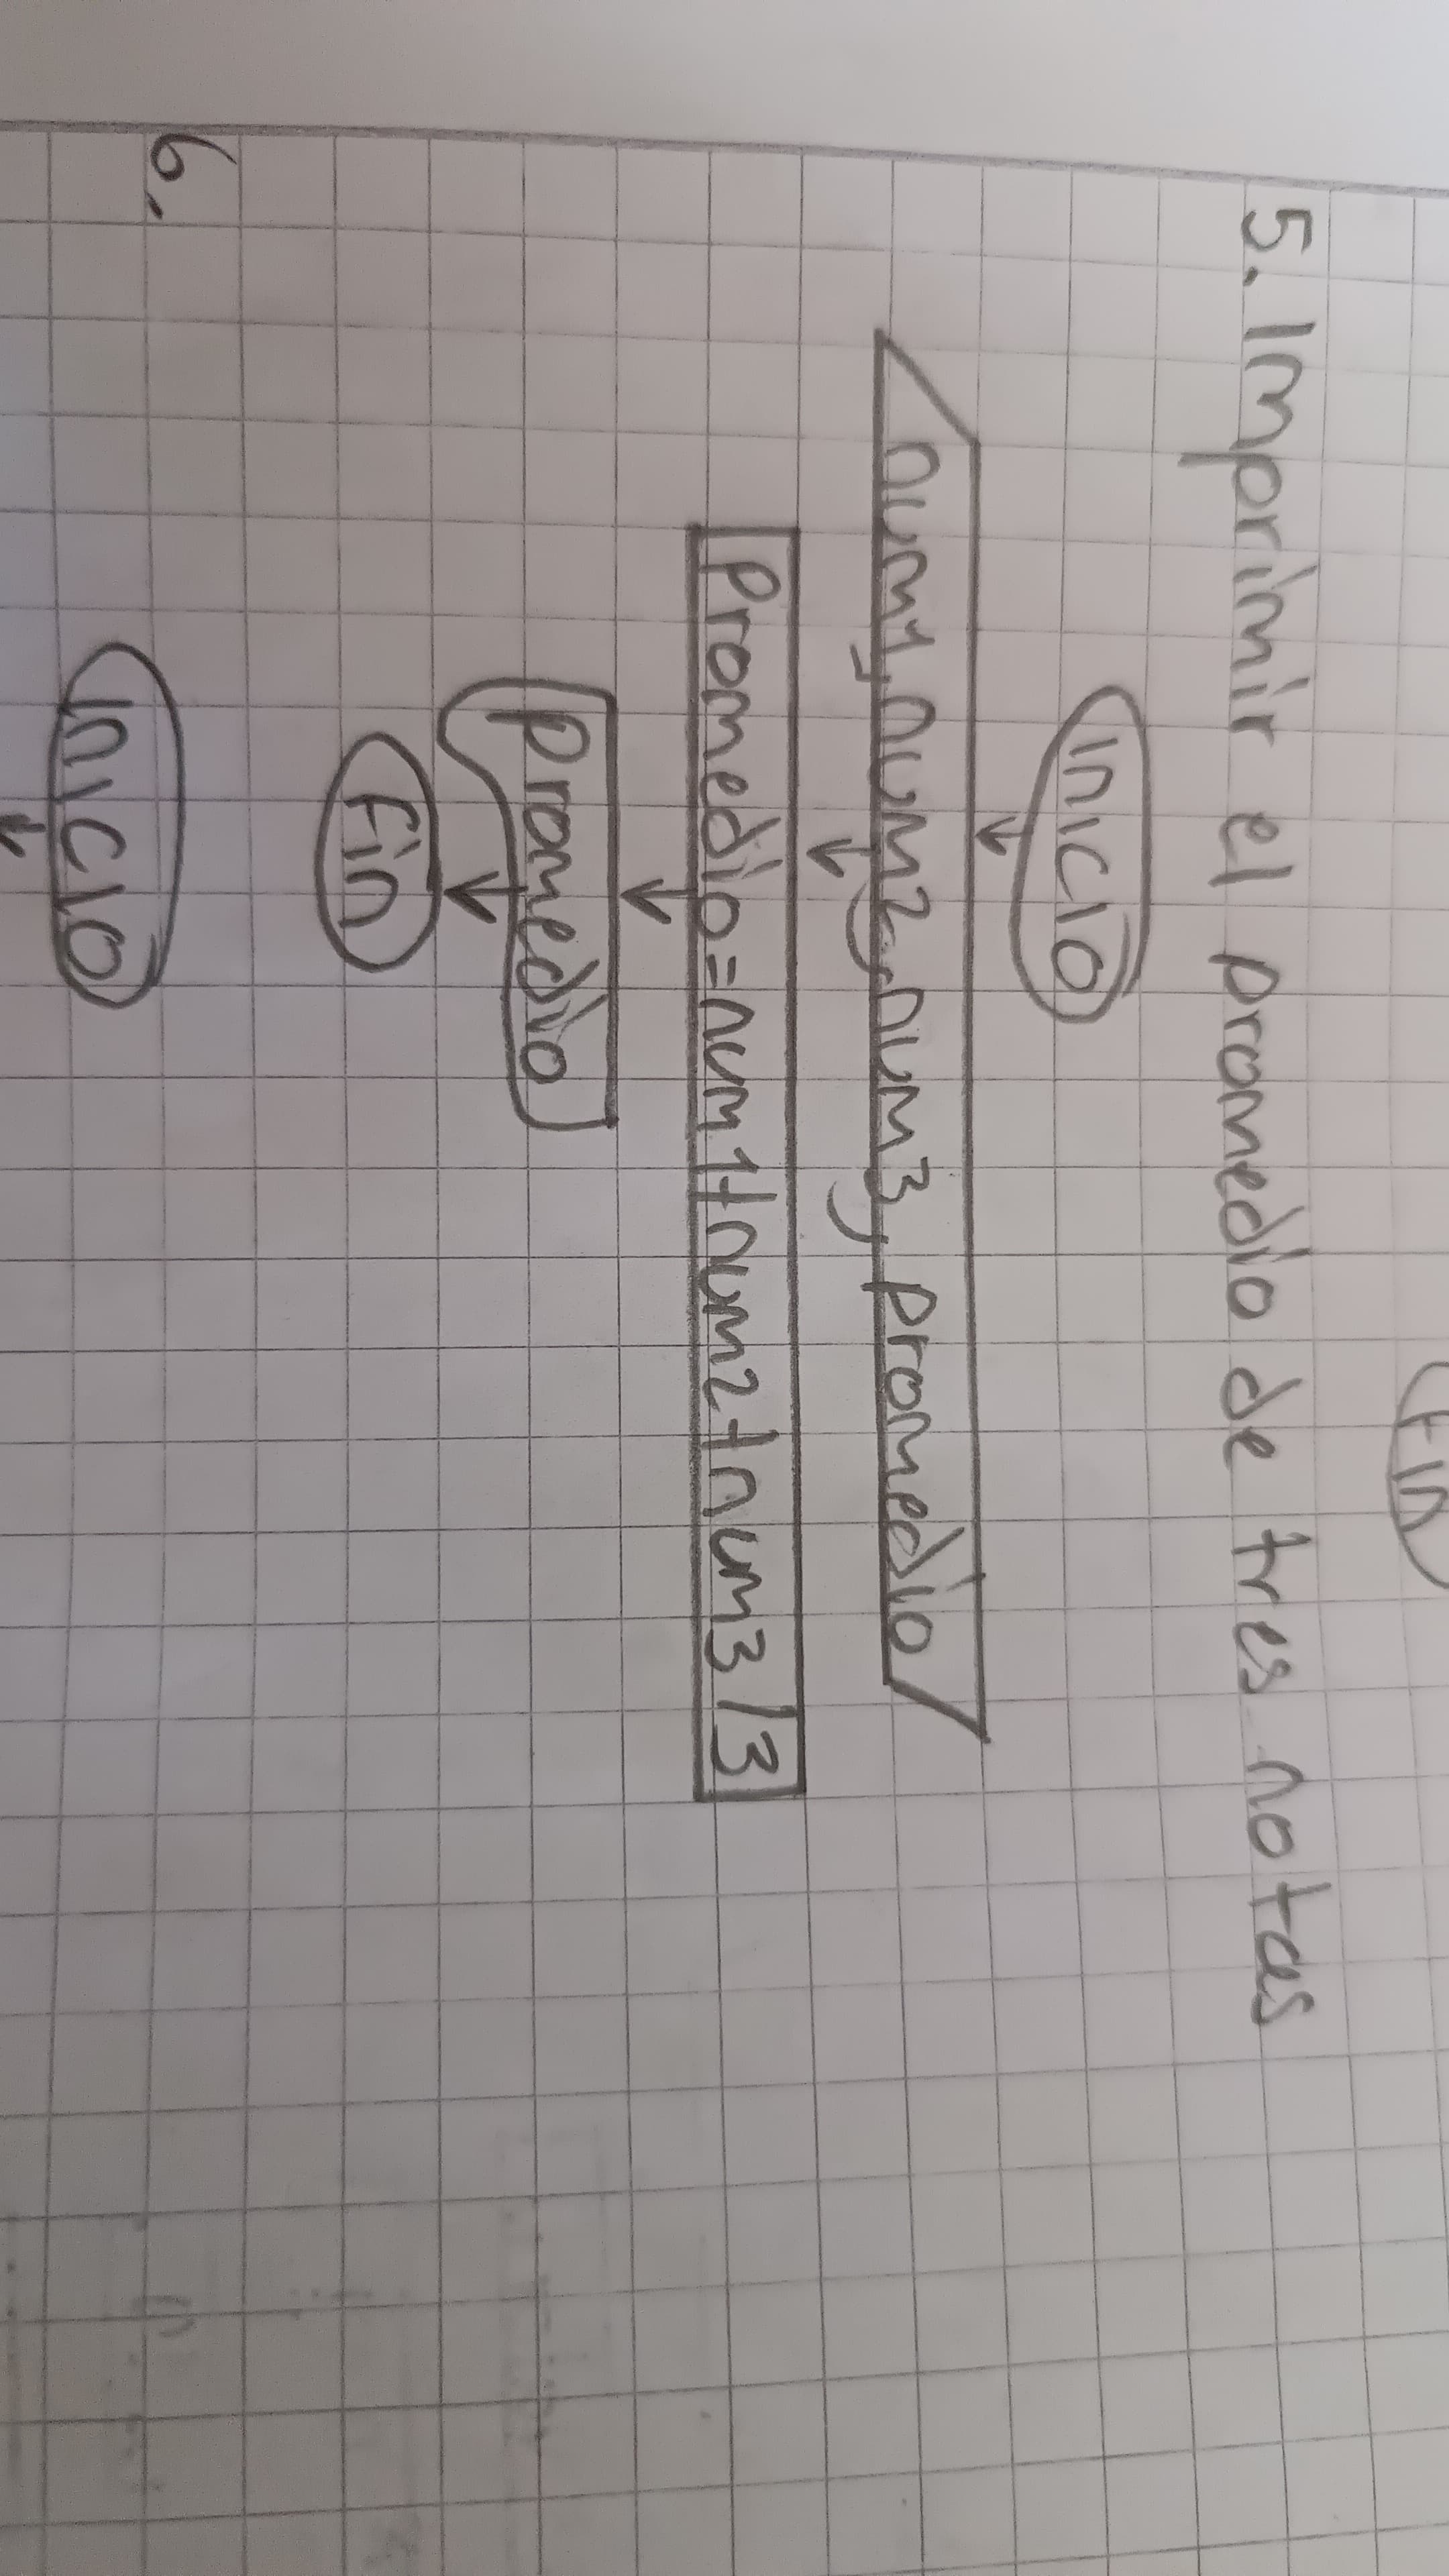 Fin
5. Imprimir el promedio de tres notas
inicio
num1, num2, num3, promedio
Promedio=num1+num2+num3/3
Promedio
Fin
6.
Inicio